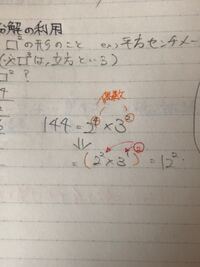 分解の利用
□²の形のこと ex) 平方センチメー
(※□³は、立方という)
□²?
4
指数
144 = 2⁴ × 3²
= (2² × 3¹)² = 12²